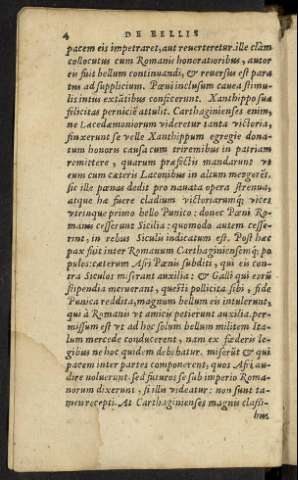 4 DE BELLIS
pacem eis impetraret, aut reuerteretur. ille clàm
collocutus cum Romanis honoratioribus, autor
eis fuit bellum continuandi, & reuersus est para
tus ad supplicium. Pœni inclusum cauea stimu-
lis intus exstātibus confecerunt. Xanthippo sua
felicitas perniciē attulit. Carthaginienses enim,
ne Lacedæmoniorum videretur tanta victoria,
finxerunt se velle Xanthippum egregie dona-
tum honoris causa cum triremibus in patriam
remittere, quarum præfectis mandarunt vt
eum cum cæteris Laconibus in altum mergerēt.
sic ille pœnas dedit pro nauata opera strenua,
atque hæ fuere cladium victoriarumq́; vices
vtrinque primo bello Punico: donec Pœni Ro-
manis cesserunt Sicilia: quomodo autem cesse-
rint, in rebus Siculis indicatum est. Post hæc
pax fuit inter Romanum Carthaginiensemq́; po
pulos: cæterum Afri Pœnis subditi, qui eis con-
tra Siculos miserant auxilia: & Galli qui eorū
stipendia meruerant, questi pollicita sibi, fide
Punica reddita, magnum bellum eis intulerunt,
qui à Romanis vt amicis petierunt auxilia. per-
missum est vt ad hoc solum bellum militem Ita-
lum mercede conducerent, nam ex fœderis le-
gibus ne hoc quidem debebatur. miserūt & qui
pacem inter partes componerent, quos Afri au-
dire noluerunt. sed futuros se sub imperio Roma-
norum dixerunt, si illis videatur: non sunt ta-
men recepti. At Carthaginienses magnis classi-
bus